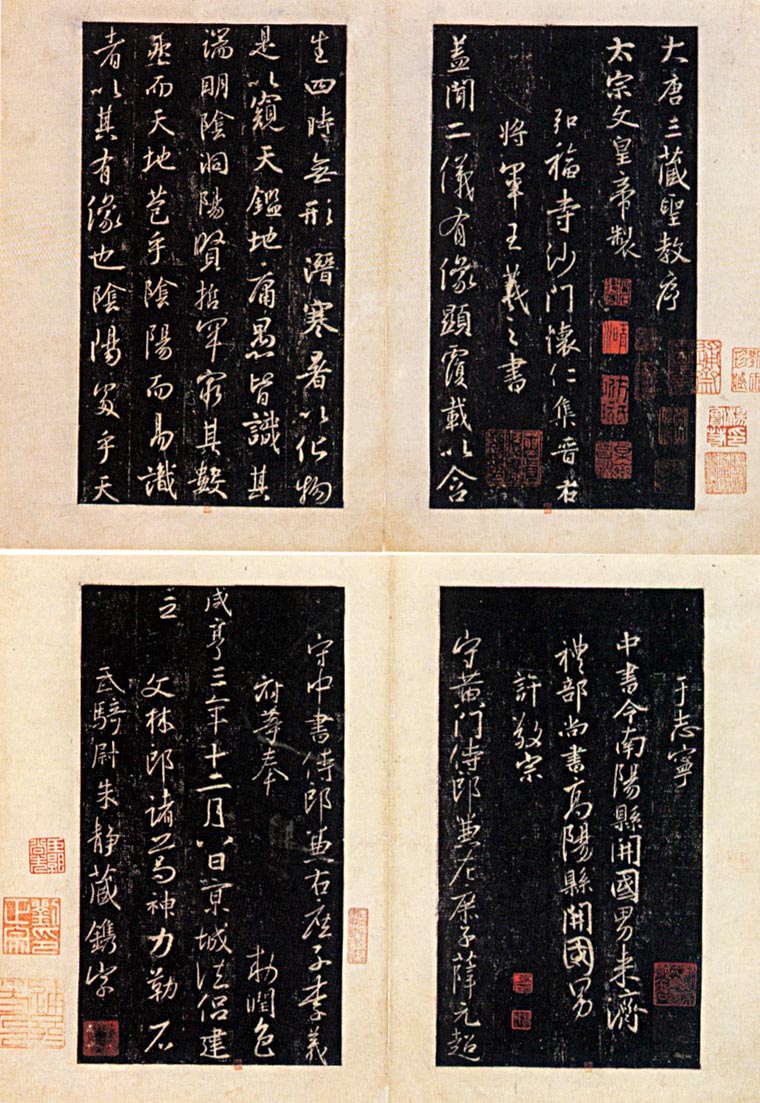 大唐三藏聖教序
太宗文皇帝製
弘福寺沙門懷仁集晉右
將軍王羲之書
蓋聞二儀有像顯覆載以含
生四時無形潛寒暑以化物
是以窺天鑑地庸愚皆識其
端明陰洞陽賢哲罕窮其數
然而天地苞乎陰陽而易識
者以其有像也陰陽處乎天
于志寧
中書令南陽縣開國男來濟
禮部尚書高陽縣開國男
許敬宗
守黃門侍郎兼左庶子薛元超
守中書侍郎兼右庶子李義
府等奉 敕潤色
咸亨三年十二月八日京城法侶建
立
文林郎諸葛神力勒石
武騎尉朱靜藏鐫字